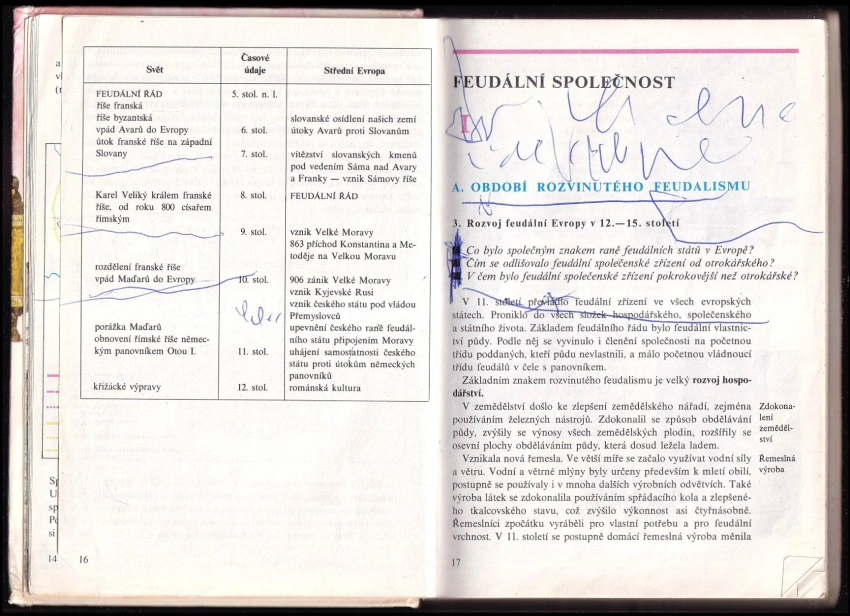 Svět
Časové
údaje
Střední Evropa
FEUDÁLNÍ ŘÁD
5. stol. n. l.
říše franská
říše byzantská
slovanské osídlení našich zemí
vpád Avarů do Evropy
6. stol.
útoky Avarů proti Slovanům
útok franské říše na západní
Slovany
7. stol.
vítězství slovanských kmenů
pod vedením Sáma nad Avary
a Franky — vznik Sámovy říše
Karel Veliký králem franské
8. stol.
FEUDÁLNÍ ŘÁD
říše, od roku 800 císařem
římským
9. stol.
vznik Velké Moravy
863 příchod Konstantina a Me-
toděje na Velkou Moravu
rozdělení franské říše
vpád Maďarů do Evropy
10. stol.
906 zánik Velké Moravy
vznik Kyjevské Rusi
vznik českého státu pod vládou
Přemyslovců
porážka Maďarů
upevnění českého raně feudál-
obnovení římské říše němec-
ního státu připojením Moravy
kým panovníkem Otou I.
11. stol.
uhájení samostatnosti českého
státu proti útokům německých
panovníků
křižácké výpravy
12. stol.
románská kultura
14
16
FEUDÁLNÍ SPOLEČNOST
I
A. OBDOBÍ ROZVINUTÉHO FEUDALISMU
3. Rozvoj feudální Evropy v 12.—15. století
Co bylo společným znakem raně feudálních států v Evropě?
Čím se odlišovalo feudální společenské zřízení od otrokářského?
V čem bylo feudální společenské zřízení pokrokovější než otrokářské?
V 11. století převládlo feudální zřízení ve všech evropských
státech. Proniklo do všech složek hospodářského, společenského
a státního života. Základem feudálního řádu bylo feudální vlastnic-
tví půdy. Podle něj se vyvinulo i členění společnosti na početnou
třídu poddaných, kteří půdu nevlastnili, a málo početnou vládnoucí
třídu feudálů v čele s panovníkem.
Základním znakem rozvinutého feudalismu je velký rozvoj hospo-
dářství.
V zemědělství došlo ke zlepšení zemědělského nářadí, zejména
používáním železných nástrojů. Zdokonalil se způsob obdělávání
půdy, zvýšily se výnosy všech zemědělských plodin, rozšířily se
osevní plochy obděláváním půdy, která dosud ležela ladem.
Zdokona-
lení
zeměděl-
ství
Vznikala nová řemesla. Ve větší míře se začalo využívat vodní síly
a větru. Vodní a větrné mlýny byly určeny především k mletí obilí,
postupně se používaly i v mnoha dalších výrobních odvětvích. Také
výroba látek se zdokonalila používáním spřádacího kola a zlepšené-
ho tkalcovského stavu, což zvýšilo výkonnost asi čtyřnásobně.
Řemeslníci zpočátku vyráběli pro vlastní potřebu a pro feudální
vrchnost. V 11. století se postupně domácí řemeslná výroba měnila
Řemeslná
výroba
17